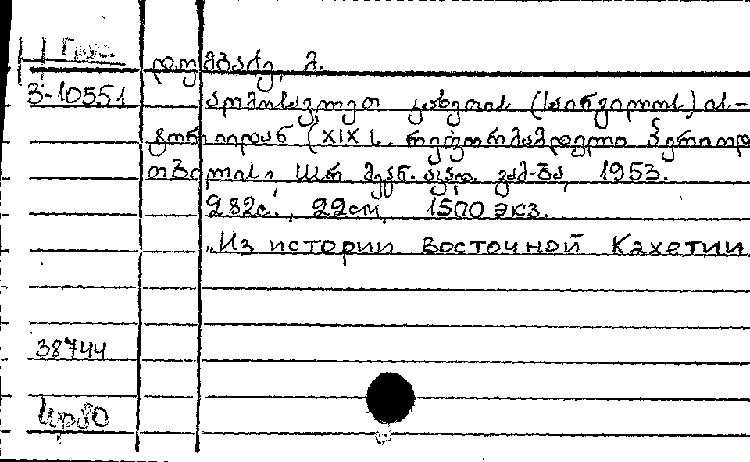 დუმბაძე, მ.
3-10551
აღმოსავლეთ კახეთის (საინგილოს) ის-
ტორიიდან (XIX ს. რეფორმამდელი პერიოდ
თბილისი, სსრ მეცn. აკად. გამ-ბა, 1953.
282с., 22см, 1500 экз.
„Из истории восточной Кахетии
38744